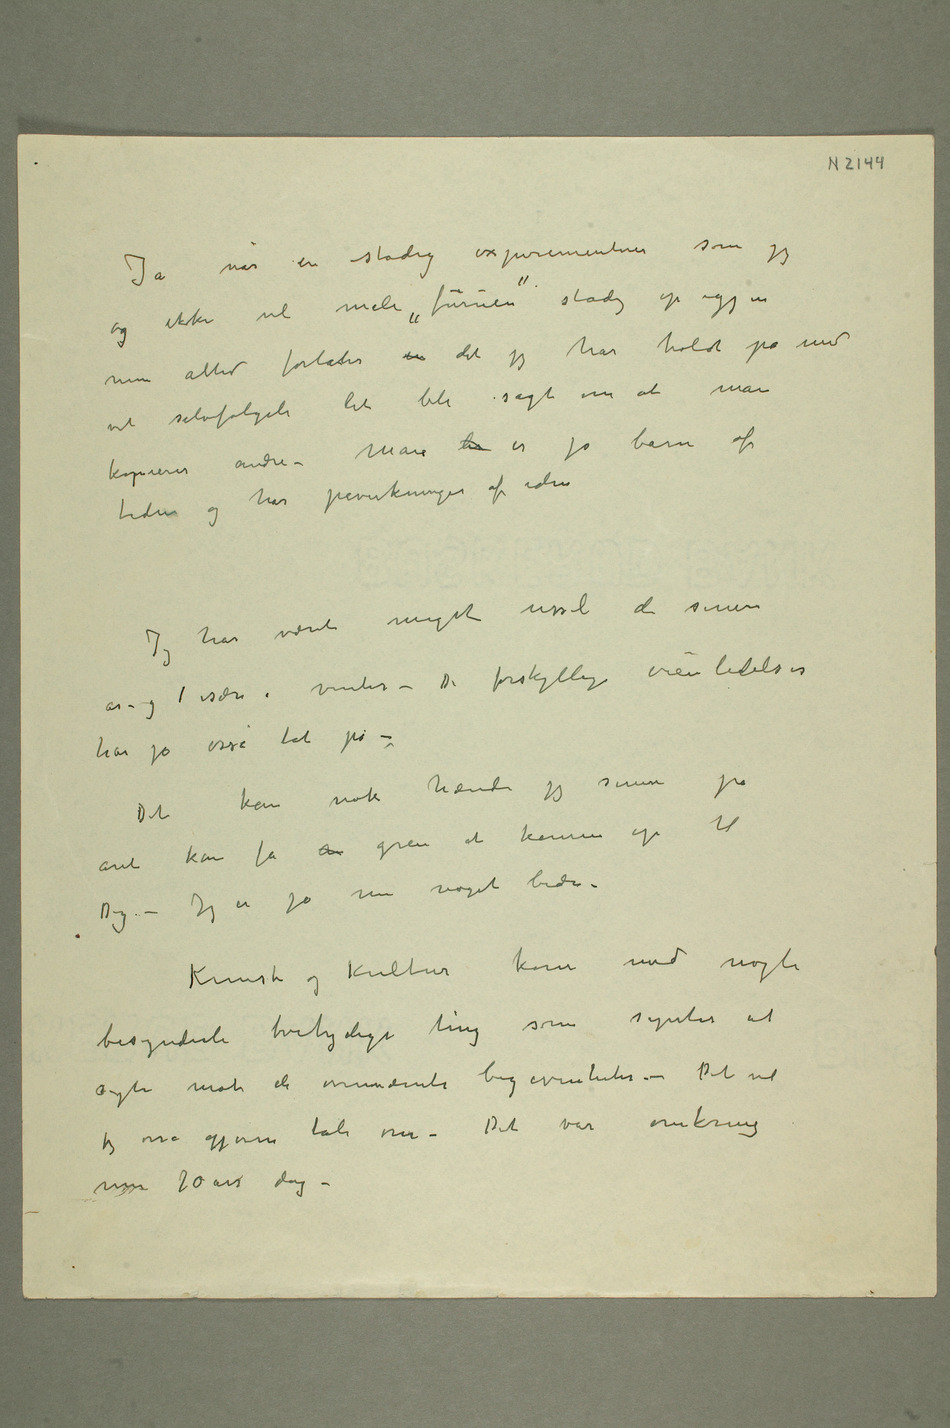 N 2144
Ja når en stadig experimenterer som jeg
og ikke vil male „furuen" stadig op igjen
men altid forlater en det jeg har holdt på med
vil selvfølgeli let bli sagt om at man
kopierer andre – Man er jo barn af
tiden og har pavirkninger af
Jeg har været meget ussel de senere
ar – og især i vinter – De forskjellige
har jo også tat på –
Det kan nok hænde jeg senere på
aret kan få greie at komme op til
Dig. – Jeg er jo nu noget bedre –
Kunst og Kultur kom med nogle
besynderli tvetydige ting som synter at
sigte mot de omnævnte begivenheter – Det vil
jeg osså gjerne tale om – Det var omkring
min 70 års dag –